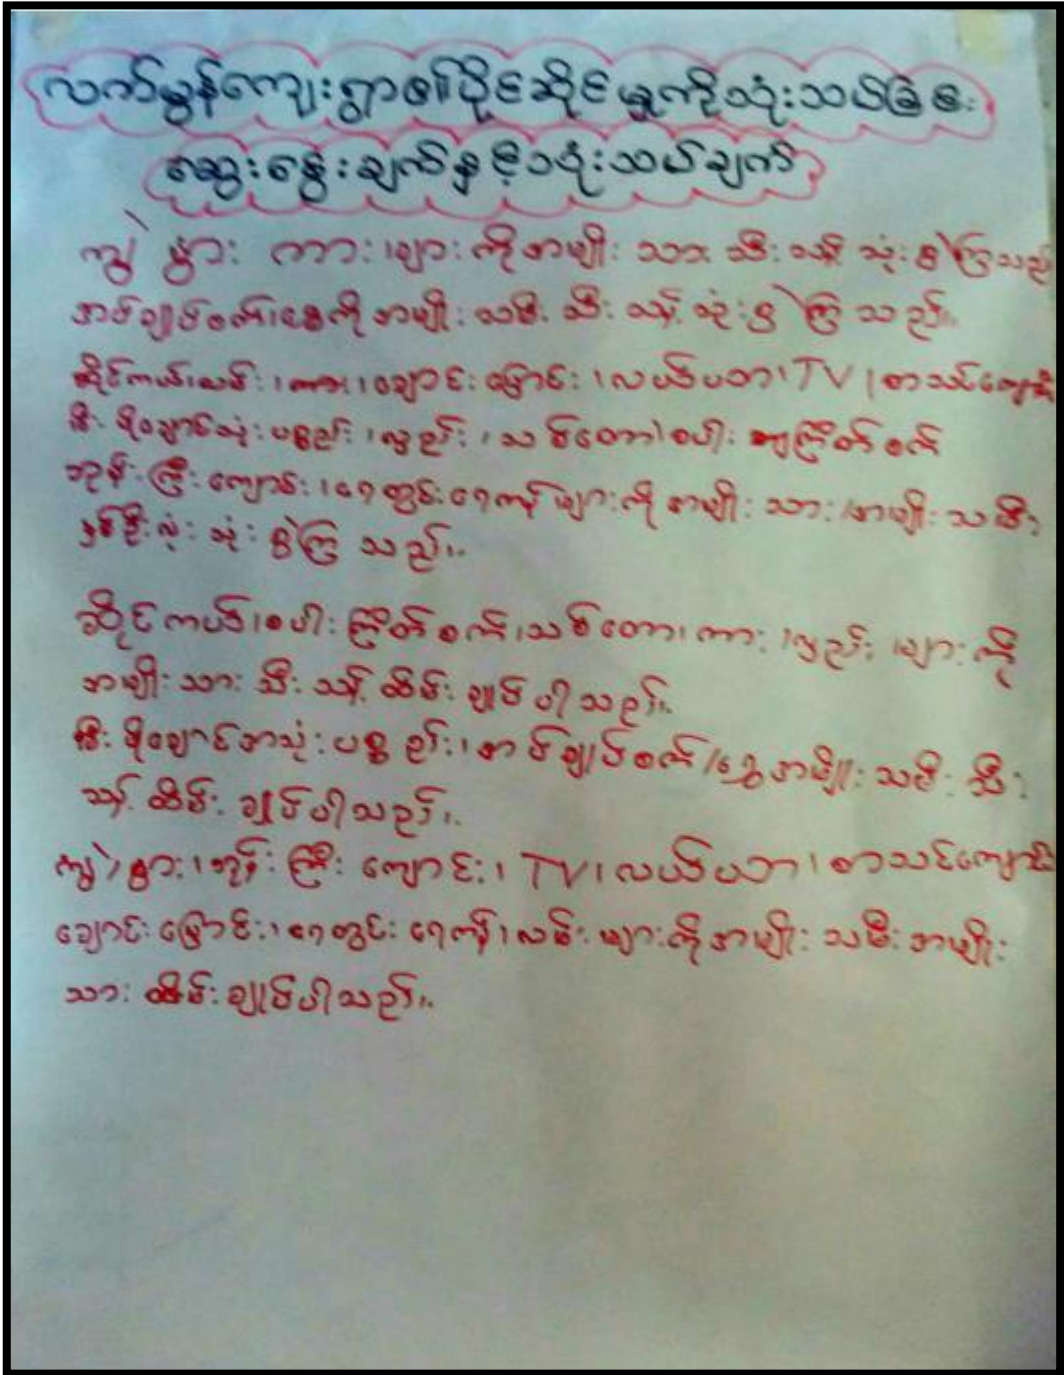 လက်မွန်ကျေးရွာ၏ပိုင်ဆိုင်မှုကိုသုံးသပ်ခြင်း
ဆွေးနွေးချက်နှင့်သုံးသပ်ချက်
ကျွဲ နွား ကား များ ကိုအမျိုး သား သီး သန့် သုံး စွဲ ကြသည်
အပ်ချုပ်စက်၊ ရွှေကို အမျိုး သမီး သီး သန့် သုံး စွဲ ကြ သည်။
ဆိုင်ကယ်၊ လမ်း ၊ ကား ၊ ချောင်း မြောင်း ၊ လယ်ယာ ၊ TV ၊ စာသင်ကျောင်း
မီး ဖိုချောင်သုံး ပစ္စည်း ၊ လှည်း ၊ သစ်တော၊ စပါး ကြိတ်စက်
ဘုန်း ကြီး ကျောင်း ၊ ရေတွင်း ရေကန် များ ကို အမျိုး သား ၊အမျိုး သမီး
နှစ်ဦး လုံး သုံး စွဲကြ သည်။
ဆိုင်ကယ်၊ စပါး ကြိတ်စက် ၊သစ်တော၊ ကား ၊လှည်း များ ကို
အမျိုး သား သီး သန့် ထိမ်း ချုပ်ပါ သည်။
မီး ဖိုချောင်အသုံး ပစ္စည်း ၊ အပ်ချုပ်စက် ၊ရွှေ အမျိုး သမီး သီး
သန့် ထိမ်း ချုပ်ပါသည်။
ကျွဲ၊ နွား ၊ ဘုန်း ကြီး ကျောင်း ၊ TV ၊ လယ်ယာ ၊ စာသင်ကျောင်း
ချောင်း မြောင်း ၊ ရေတွင်း ရေကန်၊ လမ်း များ ကိုအမျိုး သမီး အမျိုး
သား ထိမ်း ချုပ်ပါသည်။